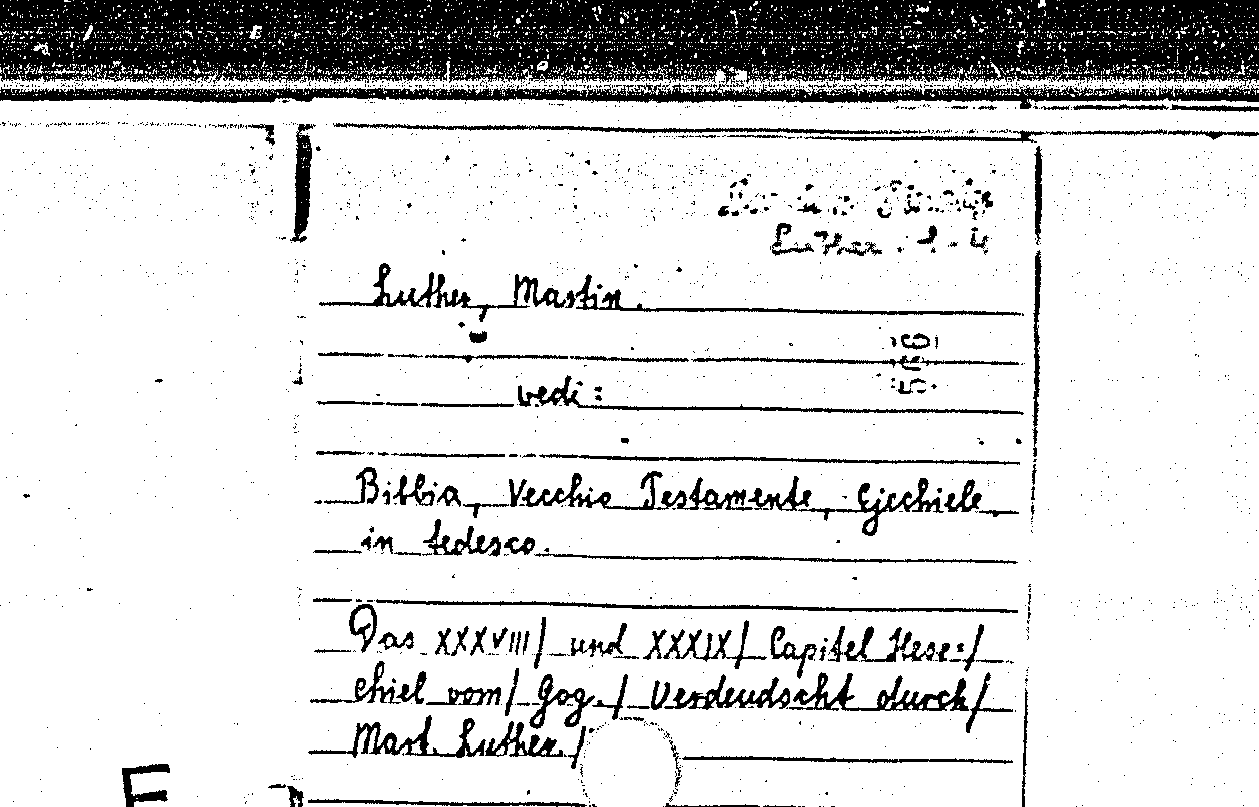 Luther . 1-4
Luther, Martin.
566
vedi:
Bibbia, Vecchio Testamento, Ezechiele,
in tedesco.
Das XXXVIII/ und XXXIX/ Capitel Hese=/
chiel vom/ Gog./ Verdeudscht durch/
Mart. Luther./
E